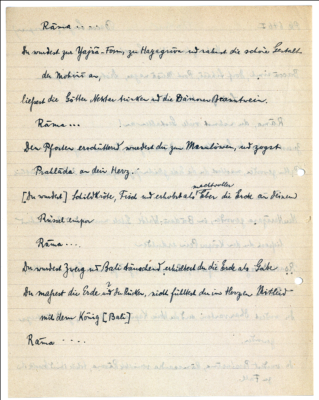 Rāma
Du wurdest zur Yajña-Form, zu Hayagrīva und nahmst die schöne Gestalt
der Mohinī an,
liessest die Götter Nektar trinken und die Dämonen Branntwein.
Rāma...
Den Pfosten erschütternd wurdest du zum Mannlöwen, und zogst
Prahlāda an dein Herz.
[Du wurdest] Schildkröte, Fisch und erhobst als machtvoller Eber die Erde an deinem
Rüssel empor
Rāma....
Du wurdest Zwerg und Bali täuschend, erhieltest du die Erde als Gabe
Du massest die Erde und den Rücken, nicht fühltest du im Herzen Mitleid
mit dem König [Bali]
Rāma ....